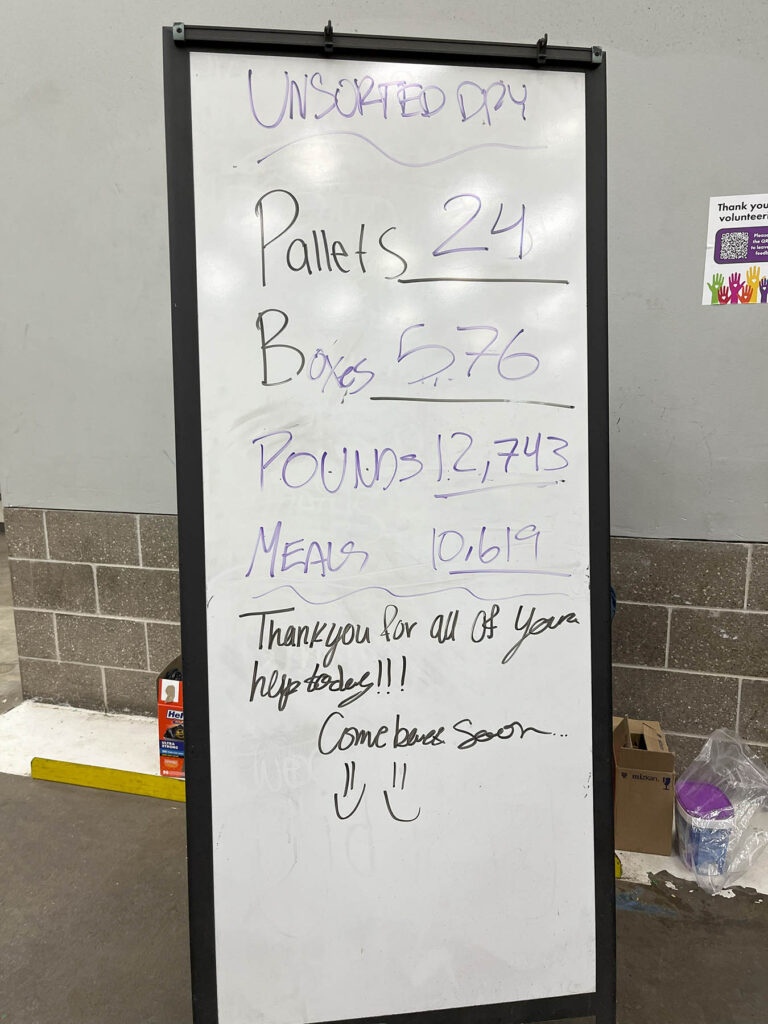 UNSORTED DRY
Pallets 24
Boxes 576
POUNDS 12,743
MEALS 10,619
Thankyou for all of Your
help today!!!
Come back soon...
Thank you
volunteer
Please
the QR
to leave
feedb
Hef
ULTRA
STRONG
mizkan